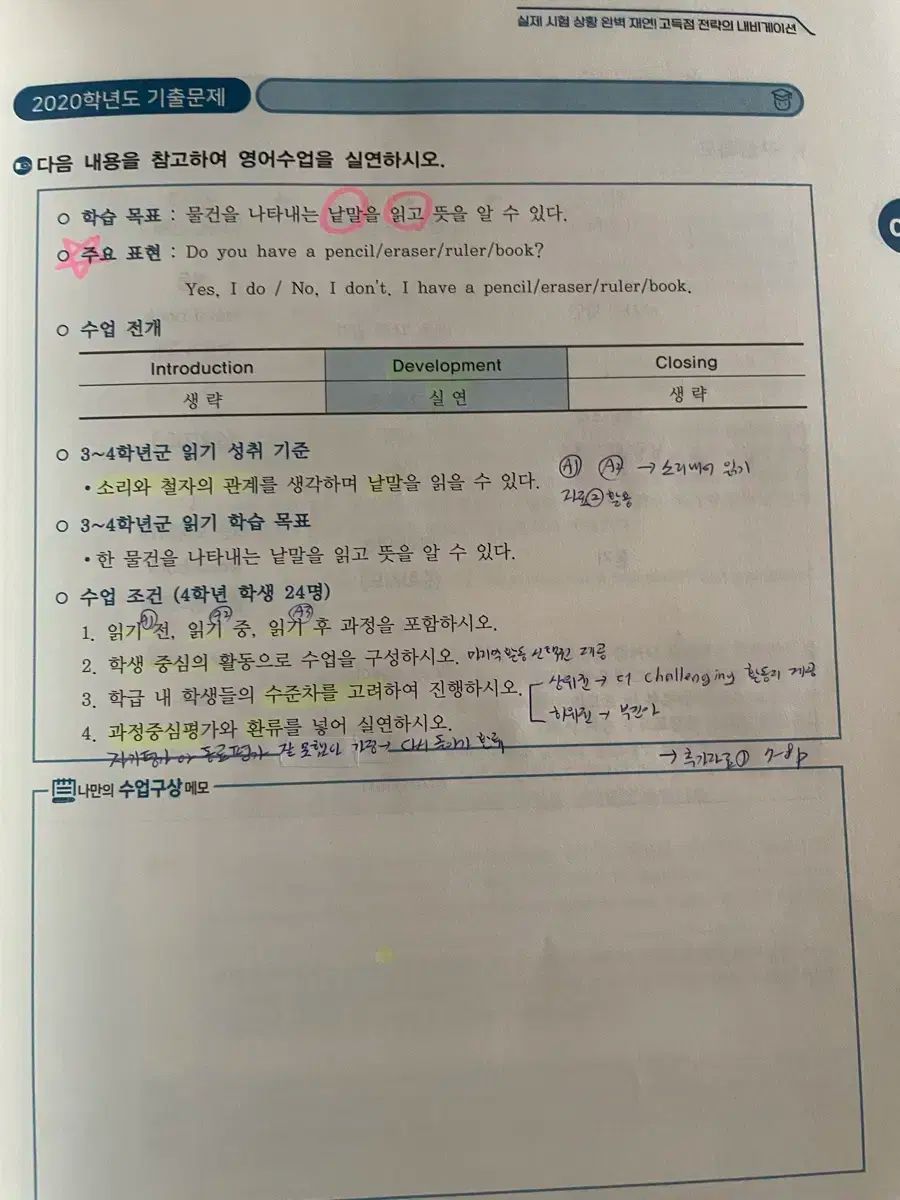 실제 시험 상황 완벽 재연! 고득점 전략의 내비게이션
2020학년도 기출문제
다음 내용을 참고하여 영어수업을 실연하시오.
○ 학습 목표 : 물건을 나타내는 낱말을 읽고 뜻을 알 수 있다.
○ 주요 표현 : Do you have a pencil/eraser/ruler/book?
Yes, I do / No, I don't. I have a pencil/eraser/ruler/book.
○ 수업 전개
Introduction Development Closing
생략 실연 생략
○ 3~4학년군 읽기 성취 기준
• 소리와 철자의 관계를 생각하며 낱말을 읽을 수 있다.
A1 A2 → 소리내어 읽기
자료② 활용
○ 3~4학년군 읽기 학습 목표
• 한 물건을 나타내는 낱말을 읽고 뜻을 알 수 있다.
○ 수업 조건 (4학년 학생 24명)
A1 A2 A3
1. 읽기 전, 읽기 중, 읽기 후 과정을 포함하시오.
2. 학생 중심의 활동으로 수업을 구성하시오. 마지막 활동 선택권 제공
3. 학급 내 학생들의 수준차를 고려하여 진행하시오.
상위권 → 더 challenging 활동지 제공
하위권 →
4. 과정중심평가와 환류를 넣어 실연하시오.
자기평가 or 동료평가 잘 못했다 가정 → 다시 환류
→ 추가자료① 7-8p
나만의 수업구상 메모